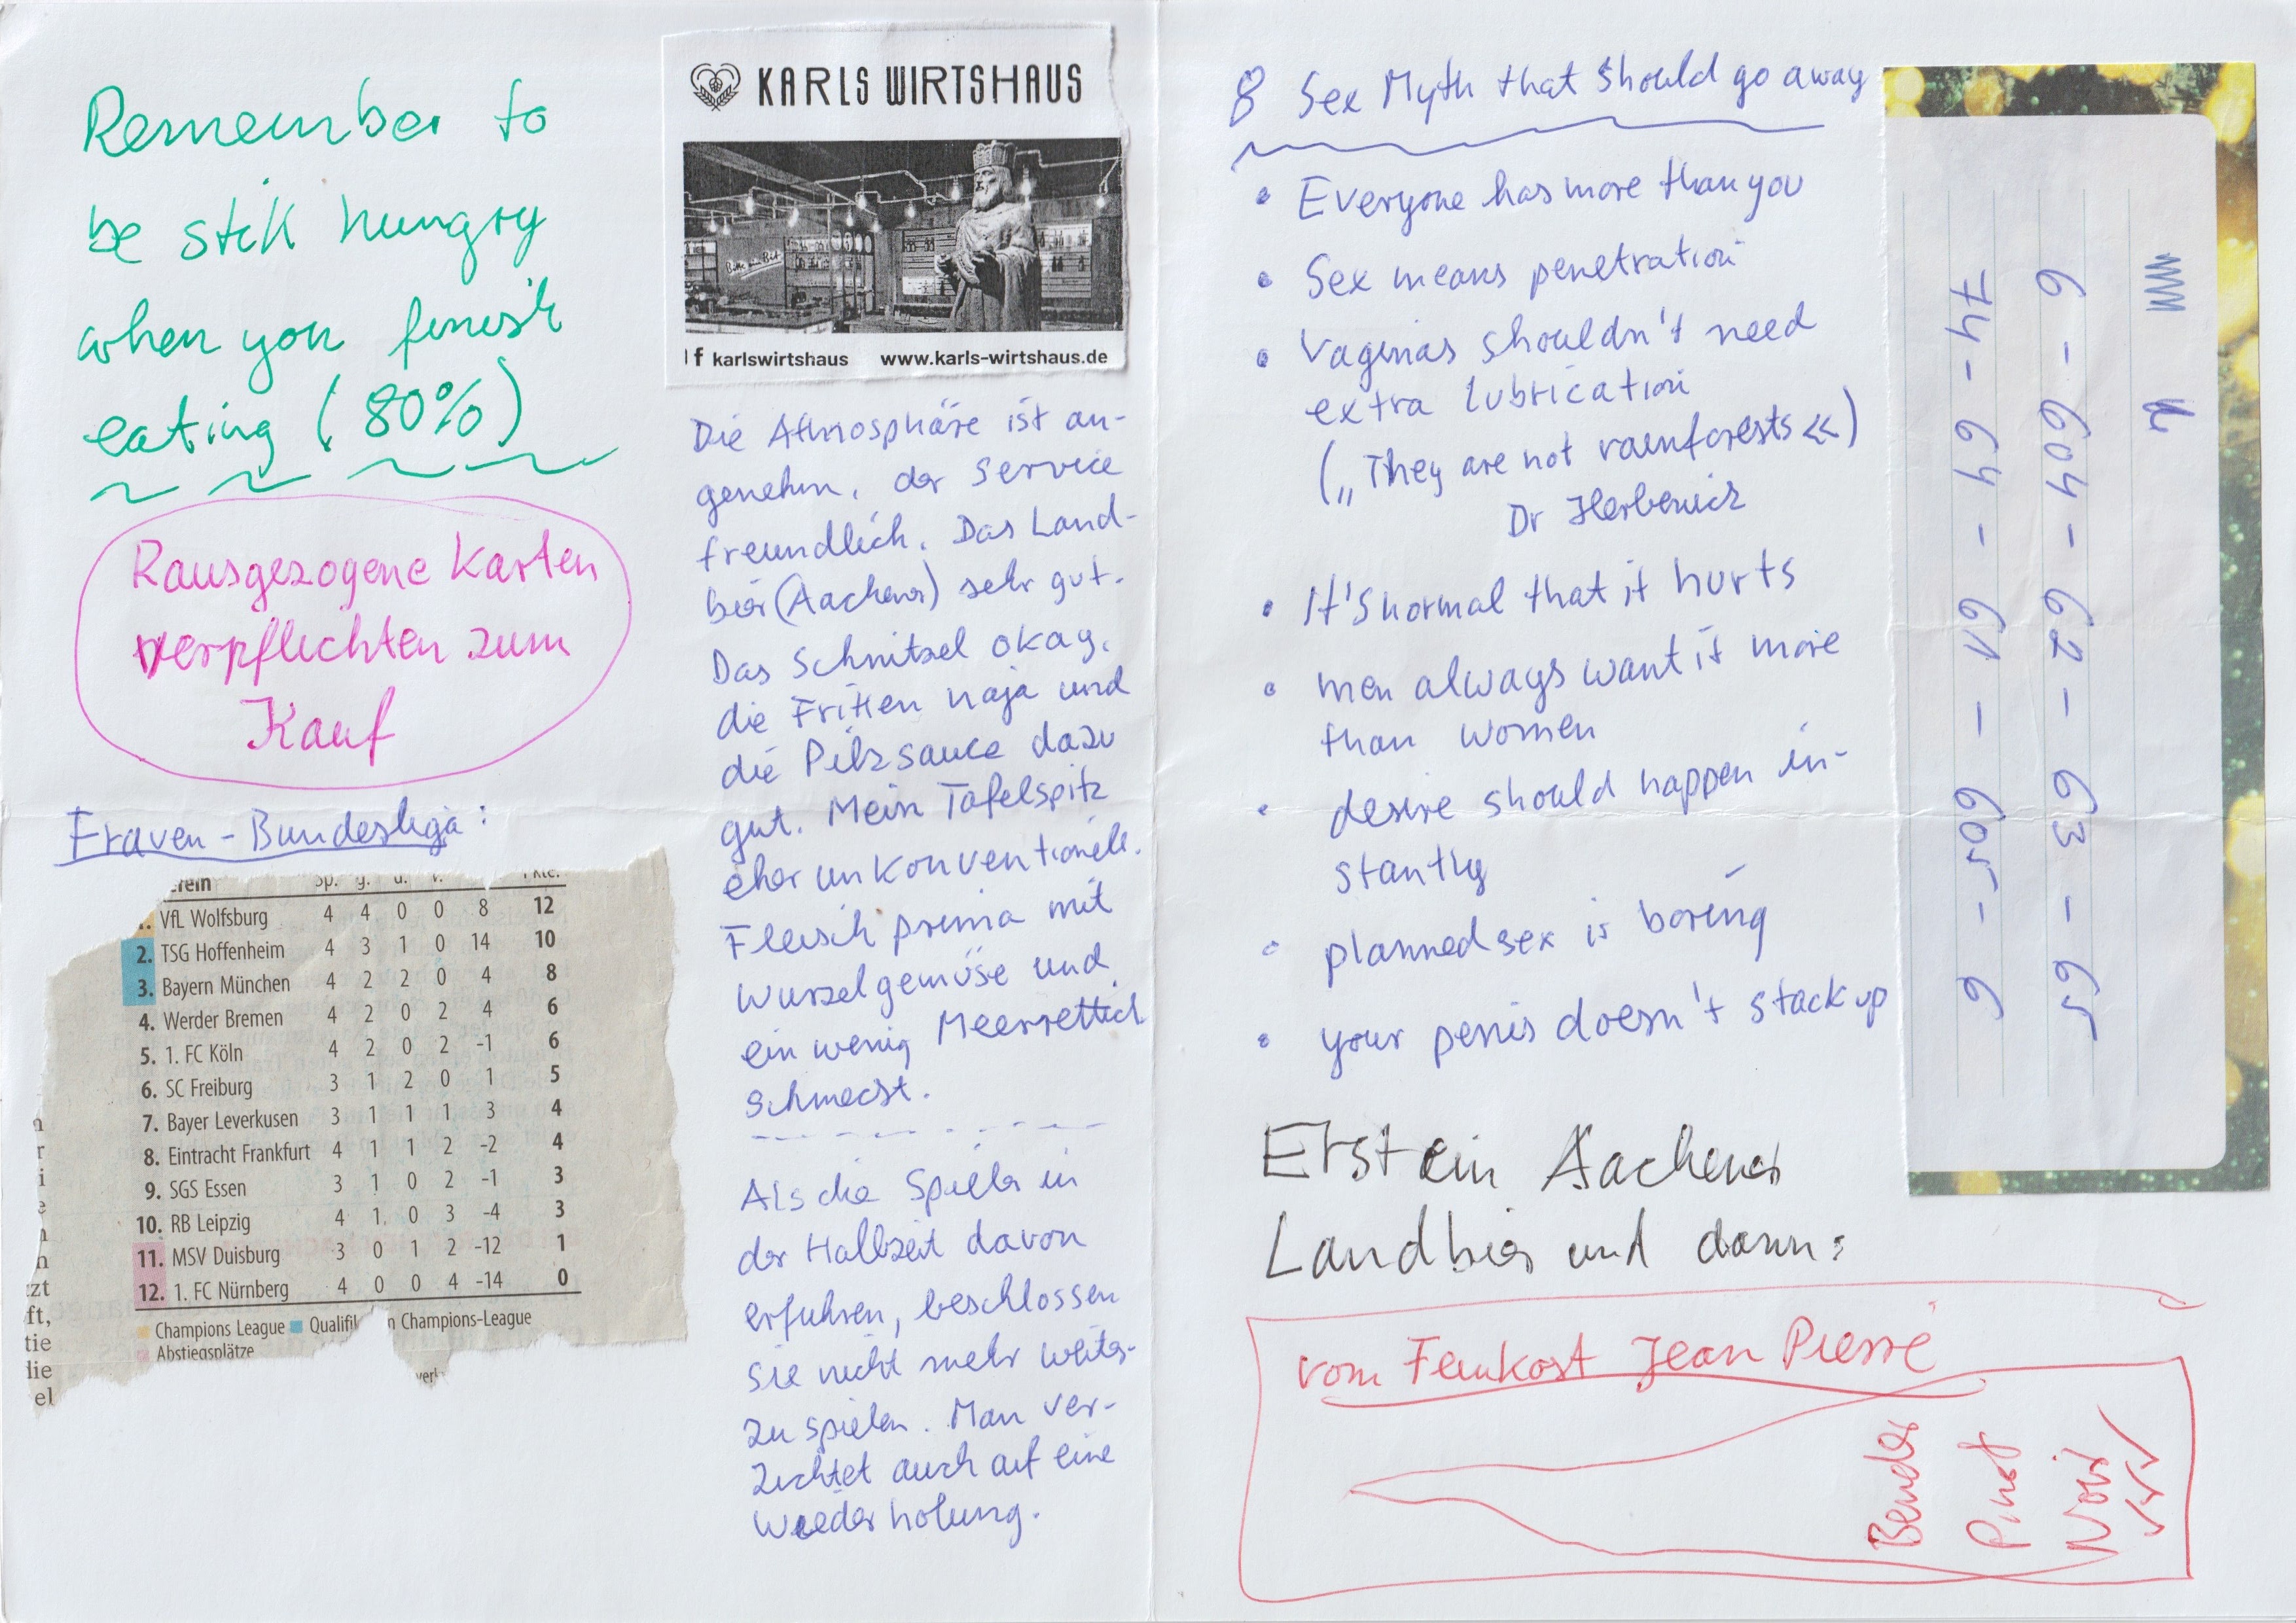 Remember to
be still hungry
when you finish
eating (80%)
Rausgezogene Karten
verpflichten zum
Kauf
Frauen-Bundesliga:
erein Sp. g. u. v. Pkte.
1. VfL Wolfsburg 4 4 0 0 8 12
2. TSG Hoffenheim 4 3 1 0 14 10
3. Bayern München 4 2 2 0 4 8
4. Werder Bremen 4 2 0 2 4 6
5. 1. FC Köln 4 2 0 2 -1 6
6. SC Freiburg 3 1 2 0 1 5
7. Bayer Leverkusen 3 1 1 1 3 4
8. Eintracht Frankfurt 4 1 1 2 -2 4
9. SGS Essen 3 1 0 2 -1 3
10. RB Leipzig 4 1 0 3 -4 3
11. MSV Duisburg 3 0 1 2 -12 1
12. 1. FC Nürnberg 4 0 0 4 -14 0
Champions League Qualifi n Champions-League
Abstiegsplätze
zt
ft,
tie
die
el
KARLS WIRTSHAUS
Bitte ein Bit
f karlswirtshaus www.karls-wirtshaus.de
Die Atmosphäre ist an-
genehm, der Service
freundlich. Das Land-
bier (Aachener) sehr gut.
Das Schnitzel okay,
die Fritten naja und
die Pilzsauce dazu
gut. Mein Tafelspitz
eher unkonventionell.
Fleisch prima mit
Wurzelgemüse und
ein wenig Meerrettich
schmeckt.
Als die Spieler in
der Halbzeit davon
erfuhren, beschlossen
sie nicht mehr weiter-
zuspielen. Man ver-
zichtet auch auf eine
Wiederholung.
8 Sex Myth that should go away
• Everyone has more than you
• Sex means penetration
• Vaginas shouldn't need
extra lubrication
(„They are not rainforests«)
Dr Herbenick
• It's normal that it hurts
• men always want it more
than women
• desire should happen in-
stantly
• planned sex is boring
• your penis doesn't stack up
6 - 604 - 62 - 63 - 65
74 - 64 - 61 - 605 - 6
Erst ein Aachener
Landbier und dann:
vom Feinkost Jean Pierre
Bender
Pinot
Noir